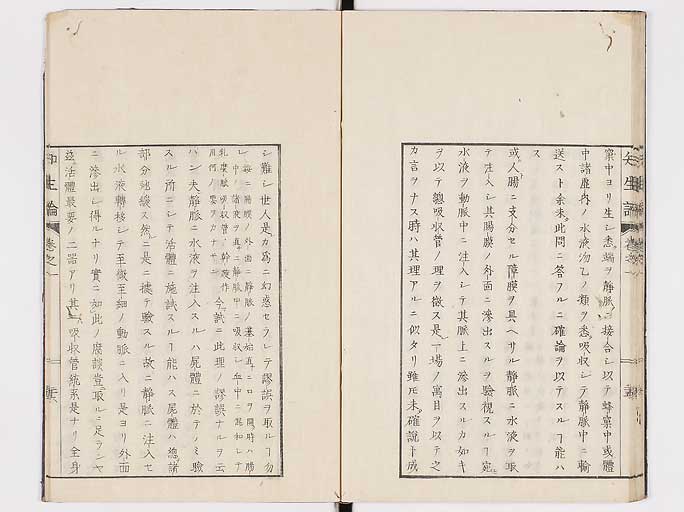 窠中ヨリ生シ悉ク端ヲ静脈ニ接合シ以テ蜂窠中或體
中諸虚内ノ水液勿乙ノ類ヲ悉ク吸收シテ静脈中ニ輸
送スト余未此問ニ答フルニ確論ヲ以テスルヿ能ハ
ス
或人腸ニ支分セル障膜ヲ具ヘサル静脈ニ水液ヲ取
テ注入シ其腸膜ノ外面ニ滲出スルヲ驗視スルヿ宛
水液ヲ動脈中ニ注入シテ其脈上ニ滲出スルカ如キ
ヲ以テ總吸收管ノ理ヲ徴ス是一場ノ寓目ヲ以テ之
カ言ヲナス時ハ其理アルニ似タリ雖𪜈未確說ト成
シ難シ世人是カ為ニ幻惑セラレテ謬誤ヲ取ルヿ勿
レ
今試ニ此理ノ謬誤ナルヲ云
ハン夫静脈ニ水液ヲ注入スルハ屍體ニ於テノミ驗
スル所ニシテ活體ニ施試スルヿ能ハス屍體ハ總諸
部分弛緩ス然ニ是ニ據テ驗スル故ニ静脈ニ注入セ
ル水液轉移シテ至微至細ノ動脈ニ入リ是ヨリ外面
ニ滲出シ得ルナリ實ニ如此ノ腐談豈取ルニ足ランヤ
玆活體最要ノ二器アリ其一吸收管統系是ナリ全身
知生論 卷之一